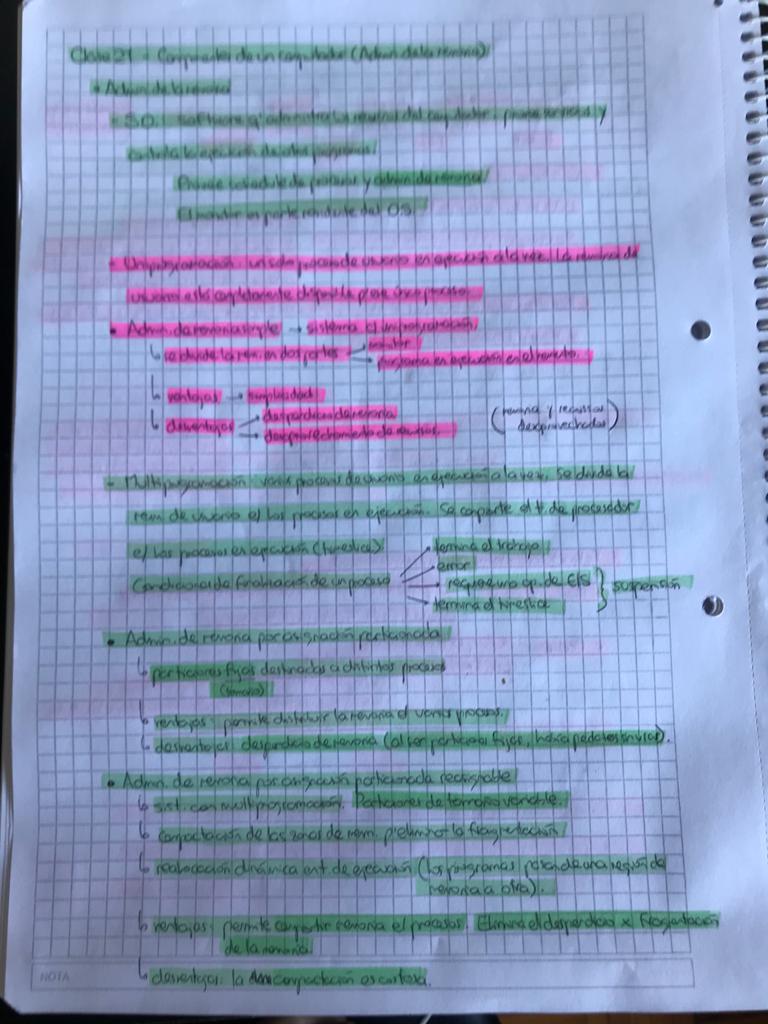 Clase 21 - Componentes de un computador (Admin de la memoria)
• Admin de la memoria
- S.O.: software q' administra los recursos del computador, provee servicios y
controla la ejecución de otros programas
Provee schedule de procesos y admin. de memoria
El monitor es parte residente del O.S.
• Uniprogramación: un solo proceso de usuario en ejecución a la vez. La memoria de
usuario está completamente disponible para único proceso.
• Admin. de memoria simple → sistema c/ uniprogramación
se divide la mem. en dos partes → monitor
→ programa en ejecución en el momento.
ventajas → simplicidad
desventajas → desperdicio de memoria
→ desaprovechamiento de recursos.
(memoria y recursos
desaprovechados)
- Multiprogramación: varios procesos de usuario en ejecución a la vez. Se divide la
mem. de usuario e/ los procesos en ejecución. Se comparte el t de procesador
e/ los procesos en ejecución (timeslice)
Condiciones de finalización de un proceso → termina el trabajo
→ error
→ requiere una op. de E/S } suspensión
→ termina el timeslice
• Admin. de memoria por asignación particionada
particiones fijas destinadas a distintos procesos
(tamaño)
ventajas: permite distribuir la memoria e/ varios procesos.
desventajas: desperdicio de memoria (al ser particiones fijas, hay pedazos sin usar).
• Admin. de memoria por asignación particionada reasignable
sist. con multiprogramación. Particiones de tamaño variable.
compactación de las zonas de mem. p/eliminar la fragmentación
realocación dinámica en t. de ejecución (los programas pasan de una región de
memoria a otra).
ventajas: permite compartir memoria e/ procesos. Elimina el desperdicio x fragmentación
de la memoria
desventajas: la compactación es costosa.
NOTA